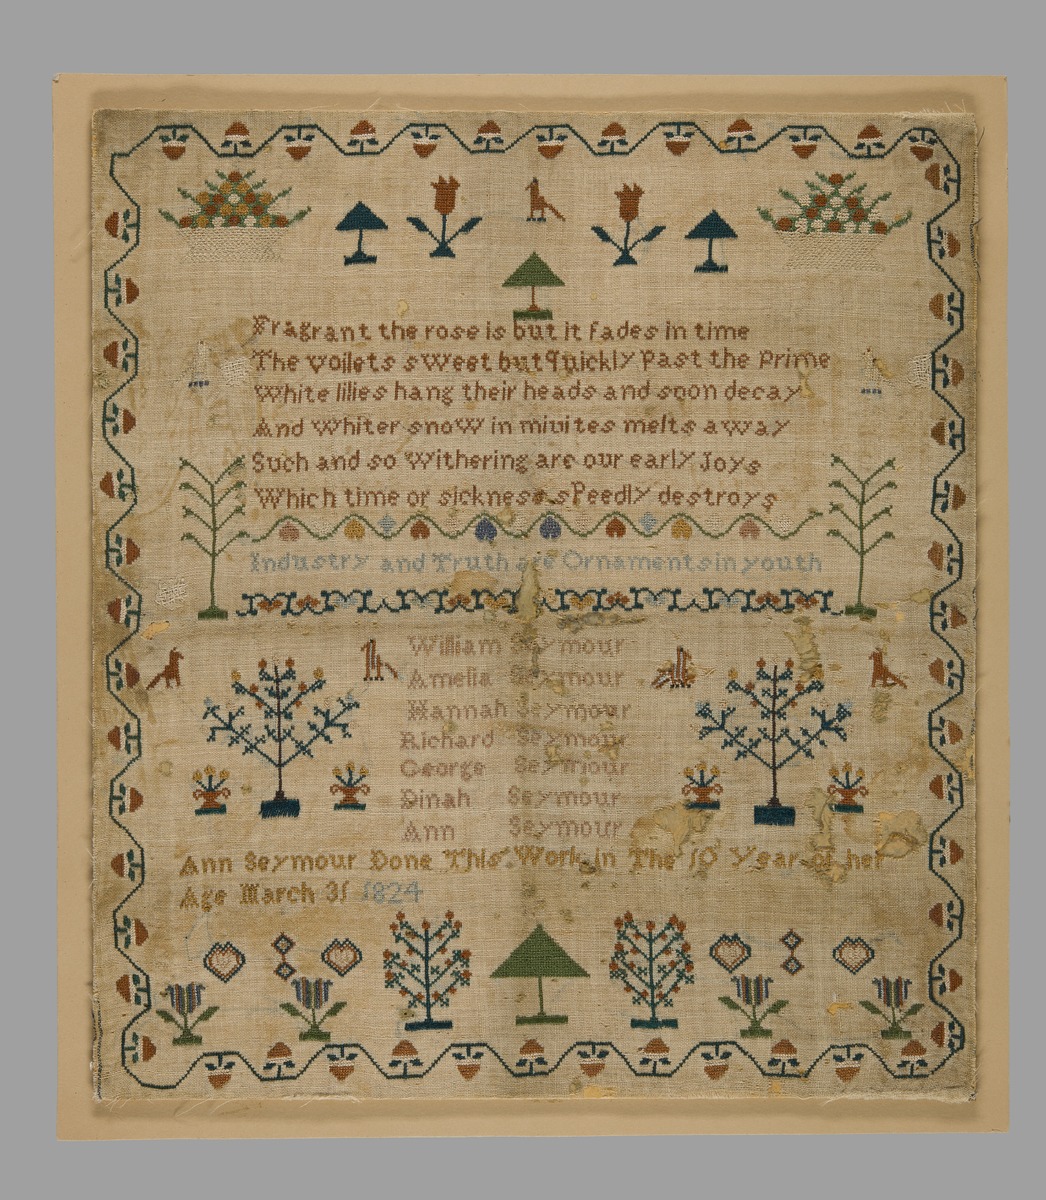 Fragrant the rose is but it fades in time
The voilets sweet but quickly past the prime
White lilies hang their heads and soon decay
And whiter snow in minites melts away
Such and so withering are our early Joys
Which time or sickness sPeedly destroys
Industry and Truth are Ornaments in youth
William Seymour
Amelia Seymour
Hannah Seymour
Richard Seymour
George Seymour
Dinah Seymour
Ann Seymour
Ann Seymour Done This Work in The 10 Year of her
Age March 31 1824